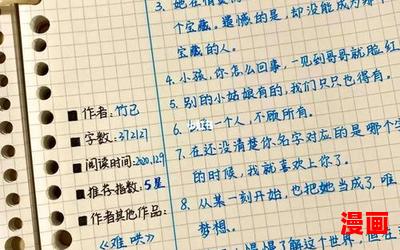 ■作者:竹已
■字数:372127
■阅读时间:2020.12.9
■推荐指数:5星
■作者其他作品:
《难哄》
个宝藏。遗憾的是,却没能成为那
宝藏的人。
4.小孩,你怎么回事,一见到哥哥就脸红
5.别的小姑娘有的,我们只只也得有。
一个人,不顾所有。
7.在还没清楚你名字对应的是哪个字
的时候,我就喜欢上你了。
8.从某一刻开始,也把她当成了唯
梦想。
了解这个世界,但在
漫画